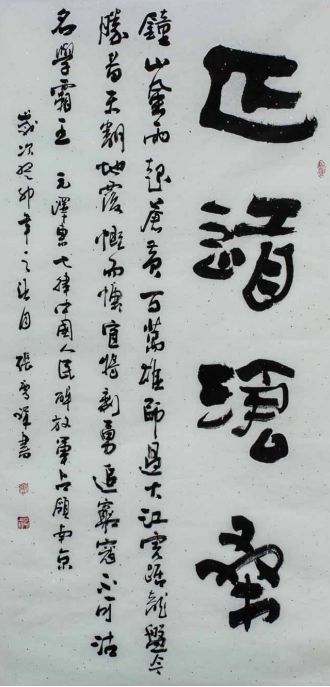 正道滄桑
鐘山風雨起蒼黃百萬雄師過大江虎踞龍盤今
勝昔天翻地覆慨而慷宜將剩勇追窮寇不可沽
名學霸王 毛澤東七律中國人民解放軍占領南京
歲次癸卯年之秋月 張雪書